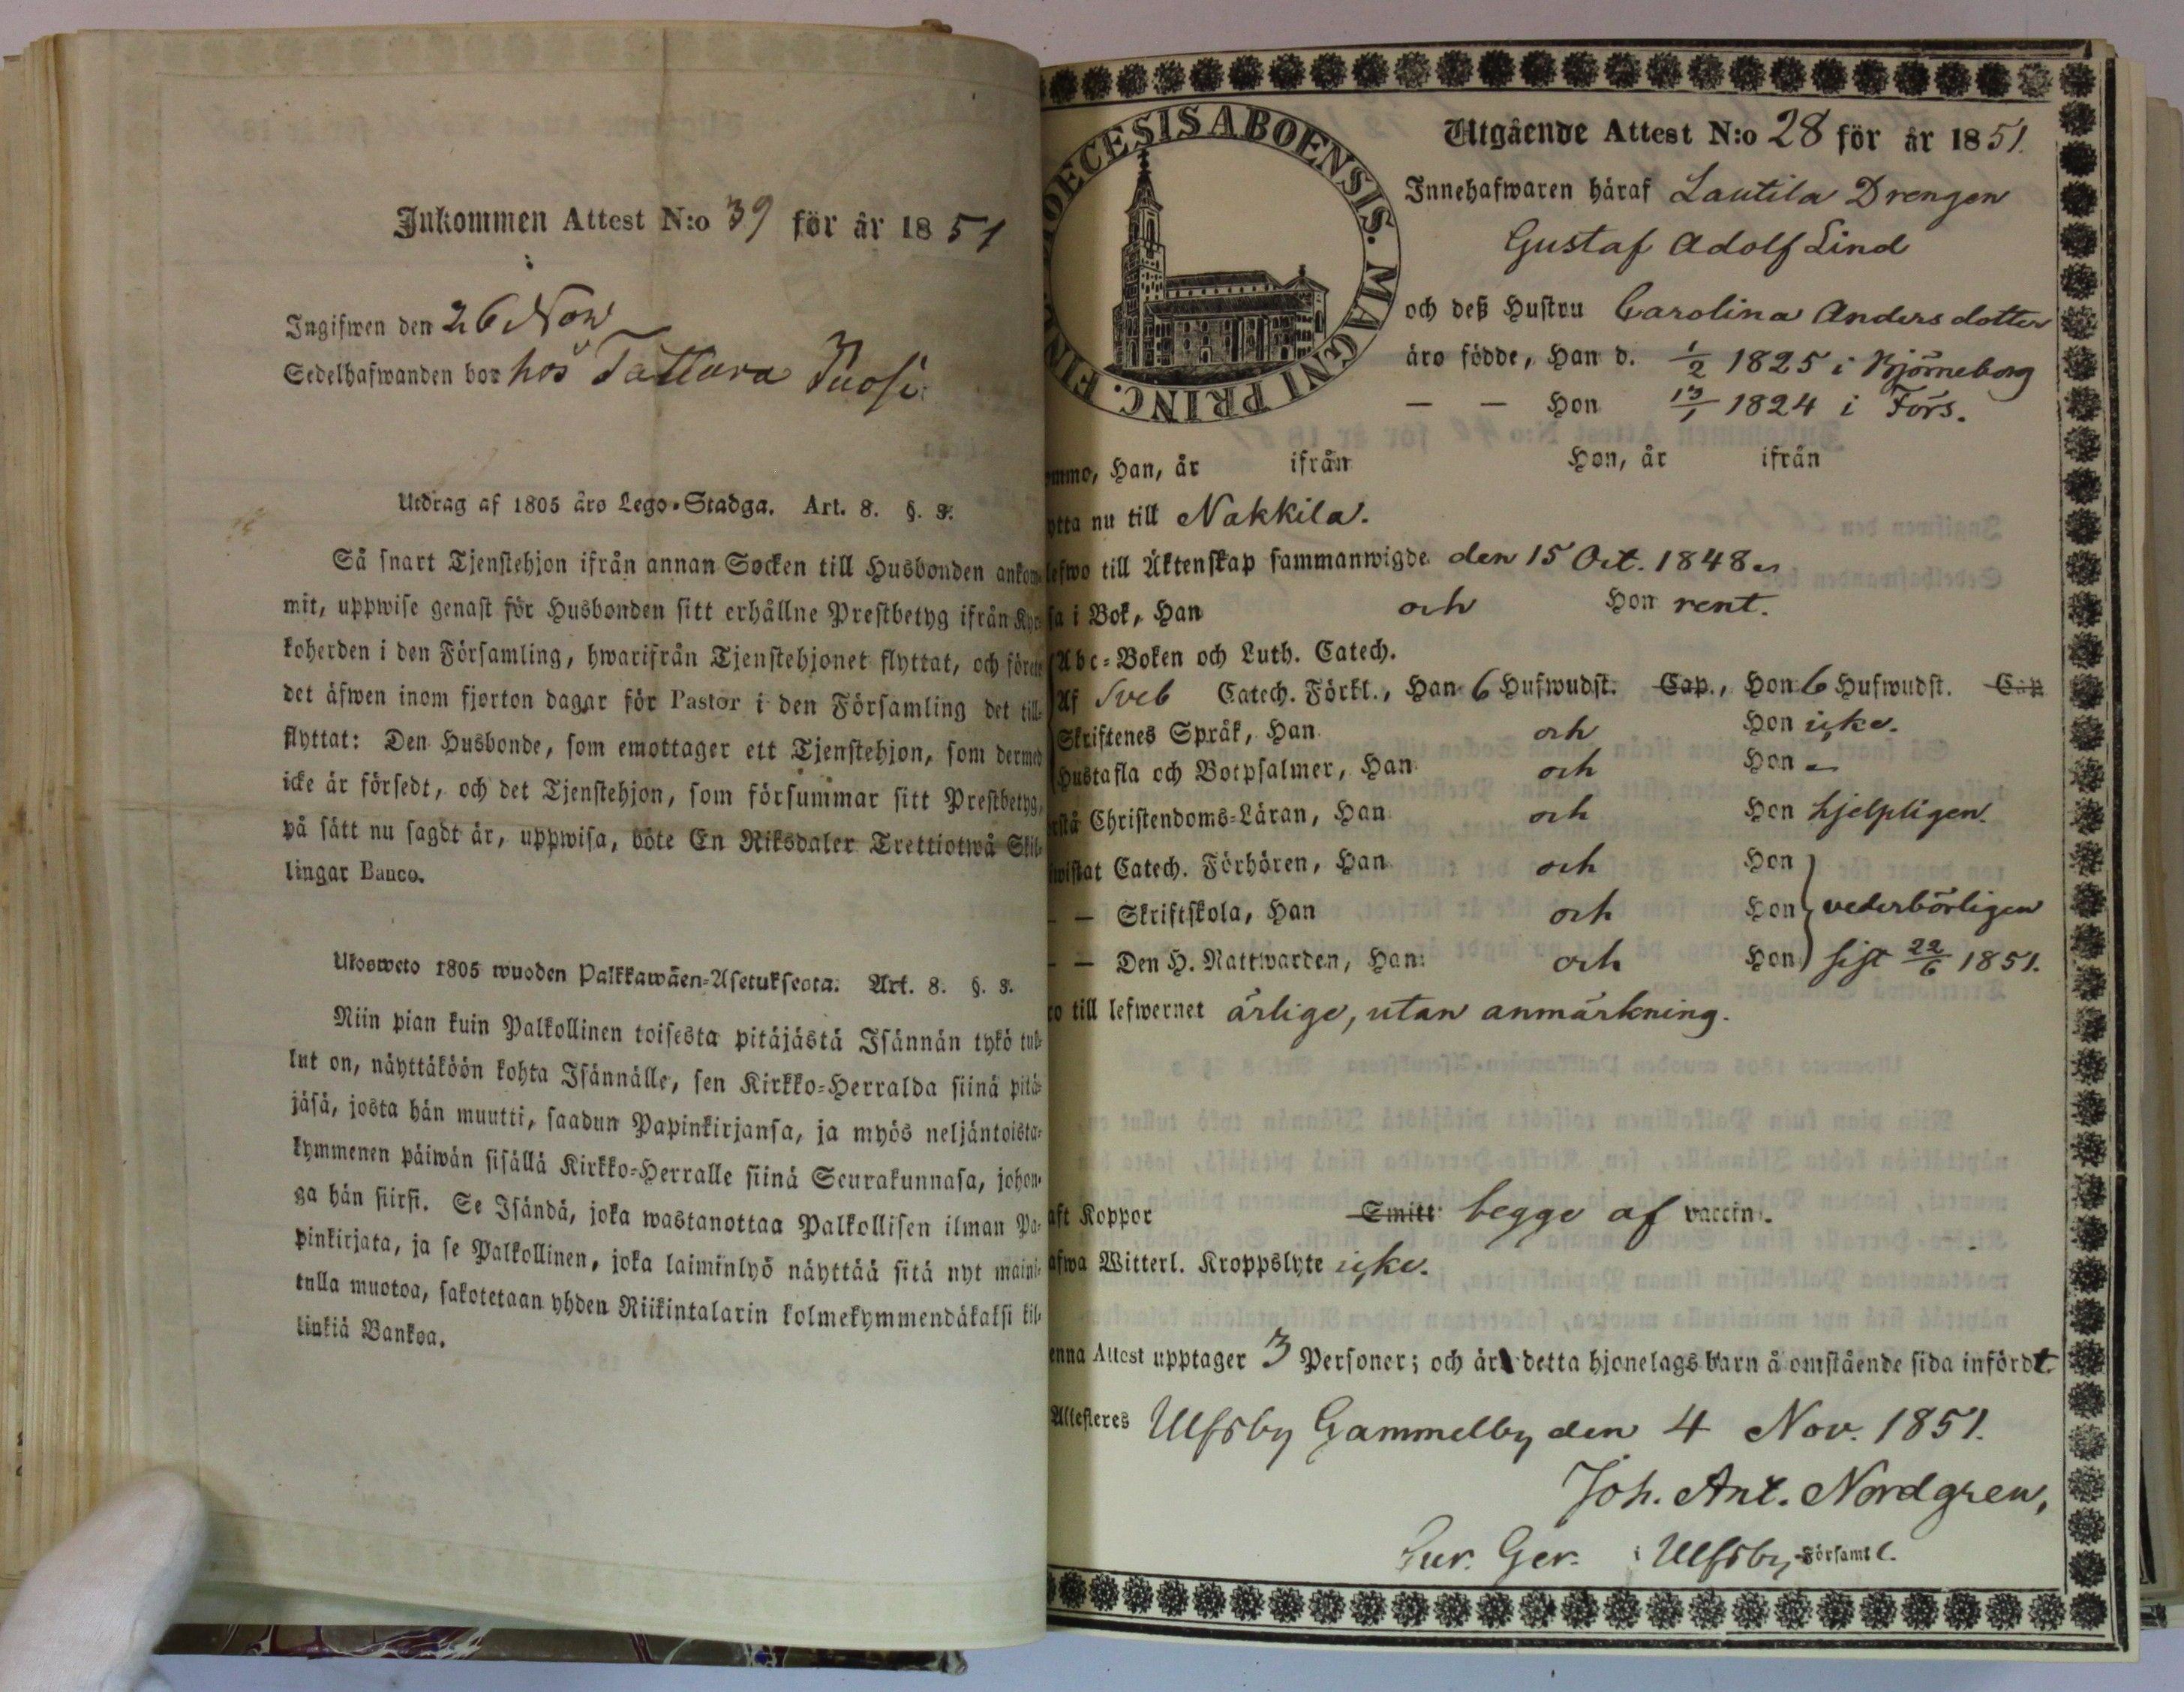 Inkommen Attest N:o 39 för år 1851
Ingifwen den 26 Nov
Sedelhafwanden bor hos Tattara Juosi
Utdrag af 1805 års Lego-Stadga. Art. 8. §. 3.
Så snart Tjenstehjon ifrån annan Socken till Husbonden ankom-
mit, uppwise genast för Husbonden sitt erhållne Prestbetyg ifrån Kyr-
koherden i den Församling, hwarifrån Tjenstehjonet flyttat, och förete
det äfwen inom fjorton dagar för Pastor i den Församling det till-
flyttat: Den Husbonde, som emottager ett Tjenstehjon, som dermed
icke är försedt, och det Tjenstehjon, som försummar sitt Prestbetyg,
på sätt nu sagdt är, uppwisa, böte En Riksdaler Trettiotwå Skil-
lingar Banco.
Ulosweto 1805 wuoden Palkkawäen-Asetuksesta. Art. 8. §. 3.
Niin pian kuin Palkollinen toisesta pitäjästä Isännän tykö tul-
lut on, näyttäköön kohta Isännälle, sen Kirkko-Herralda siinä pitä-
jäsä, josta hän muutti, saadun Papinkirjansa, ja myös neljäntoista-
kymmenen päiwän sisällä Kirkko-Herralle siinä Seurakunnasa, johon-
ga hän siirsi. Se Isändä, joka wastanottaa Palkollisen ilman Pa-
pinkirjata, ja se Palkollinen, joka laiminlyö näyttää sitä nyt maini-
tulla muotoa, sakotetaan yhden Riikintalarin kolmekymmendäkaksi kil-
linkiä Bankoa.
DIOECESIS ABOENSIS. MAGNI PRINC. FINL.
Utgående Attest N:o 28 för år 1851.
Innehafwaren häraf Lautila Drengen
Gustaf Adolf Lind
och deß Hustru Carolina Andersdotter
äro födde, Han d. 1/2 1825 i Björneborg
— — Hon 13/1 1824 i Förs.
ommo, Han, år ifrån Hon, år ifrån
ytta nu till Nakkila.
lefwo till Äktenskap sammanwigde den 15 Oct. 1848
sa i Bok, Han och Hon rent.
Abc-Boken och Luth. Catech.
Af Sveb Catech. Förkl., Han 6 Hufwudst. Cap., Hon 6 Hufwudst. Cap
Skriftenes Språk, Han och Hon icke.
Hustafla och Botpsalmer, Han och Hon
rstå Christendoms-Läran, Han och Hon hjelpligen.
wistat Catech. Förhören, Han och Hon
— — Skriftskola, Han och Hon vederbörligen
— — Den H. Nattwarden, Han och Hon sist 22/6 1851.
ro till lefwernet ärlige, utan anmärkning.
aft Koppor Smitt begge af vaccin.
afwa Witterl. Kroppslyte icke.
enna Attest upptager 3 Personer; och är detta hjonelags barn å omstående sida infördt
Attesteres Ulfsby Gammelby den 4 Nov. 1851.
Joh. Ant. Nordgren,
Cur. Ger. i Ulfsby Församl.